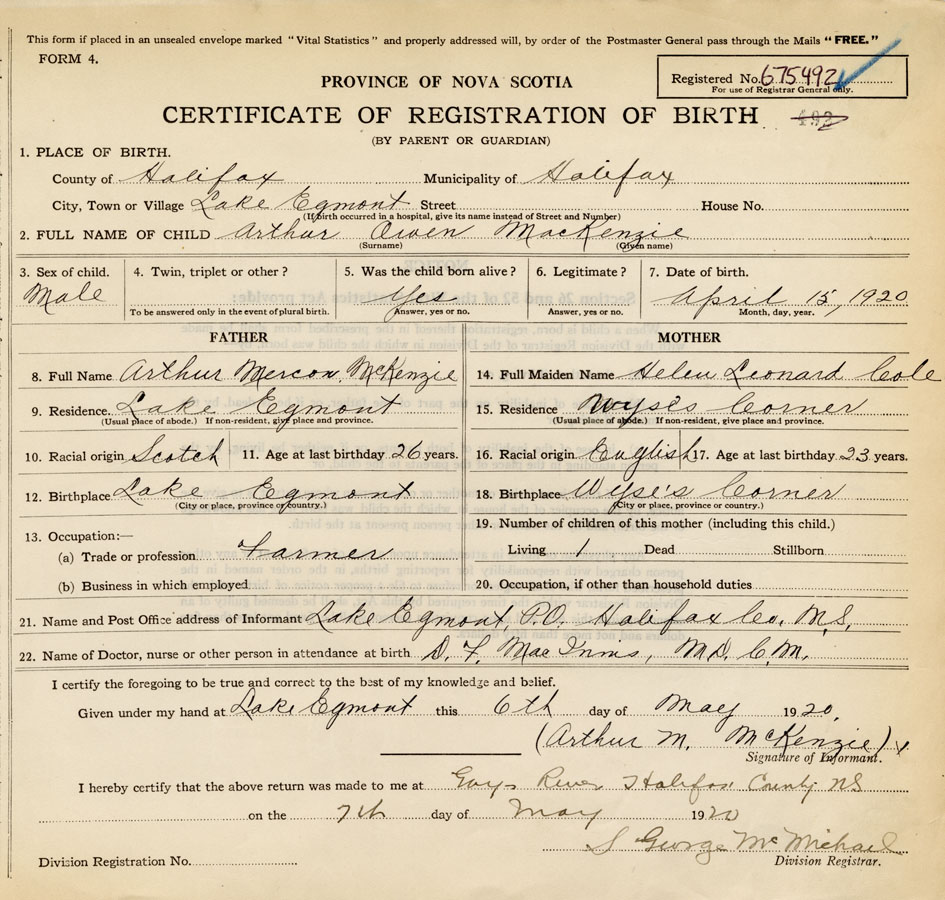 This form if placed in an unsealed envelope marked "Vital Statistics" and properly addressed will, by order of the Postmaster General pass through the Mails "FREE."
FORM 4.
Registered No. 675492
For use of Registrar General only.
PROVINCE OF NOVA SCOTIA
CERTIFICATE OF REGISTRATION OF BIRTH 492
(BY PARENT OR GUARDIAN)
1. PLACE OF BIRTH.
County of Halifax Municipality of Halifax
City, Town or Village Lake Egmont Street House No.
(If birth occurred in a hospital, give its name instead of Street and Number)
2. FULL NAME OF CHILD Arthur Owen MacKenzie
(Surname) (Given name)
3. Sex of child. 4. Twin, triplet or other? 5. Was the child born alive? 6. Legitimate? 7. Date of birth.
Male Yes April 15, 1920
To be answered only in the event of plural birth. Answer, yes or no. Answer, yes or no. Month, day, year.
FATHER MOTHER
8. Full Name Arthur McKenzie 14. Full Maiden Name Helen Leonard Cole
9. Residence. Lake Egmont 15. Residence Wyse's Corner
(Usual place of abode.) If non-resident, give place and province. (Usual place of abode.) If non-resident, give place and province.
10. Racial origin Scotch 11. Age at last birthday 26 years. 16. Racial origin English 17. Age at last birthday 23 years.
12. Birthplace Lake Egmont 18. Birthplace Wyse's Corner
(City or place, province or country.) (City or place, province or country.)
13. Occupation:— 19. Number of children of this mother (including this child.)
(a) Trade or profession Farmer Living 1 Dead Stillborn
(b) Business in which employed 20. Occupation, if other than household duties
21. Name and Post Office address of Informant Lake Egmont, P.O. Halifax Co. N.S.
22. Name of Doctor, nurse or other person in attendance at birth D. F. MacInnis, M.D. C.M.
I certify the foregoing to be true and correct to the best of my knowledge and belief.
Given under my hand at Lake Egmont this 6th day of May 1920.
(Arthur M. McKenzie)
Signature of Informant.
I hereby certify that the above return was made to me at Gays River Halifax County NS
on the 7th day of May 1920
S George McMichael
Division Registration No. Division Registrar.